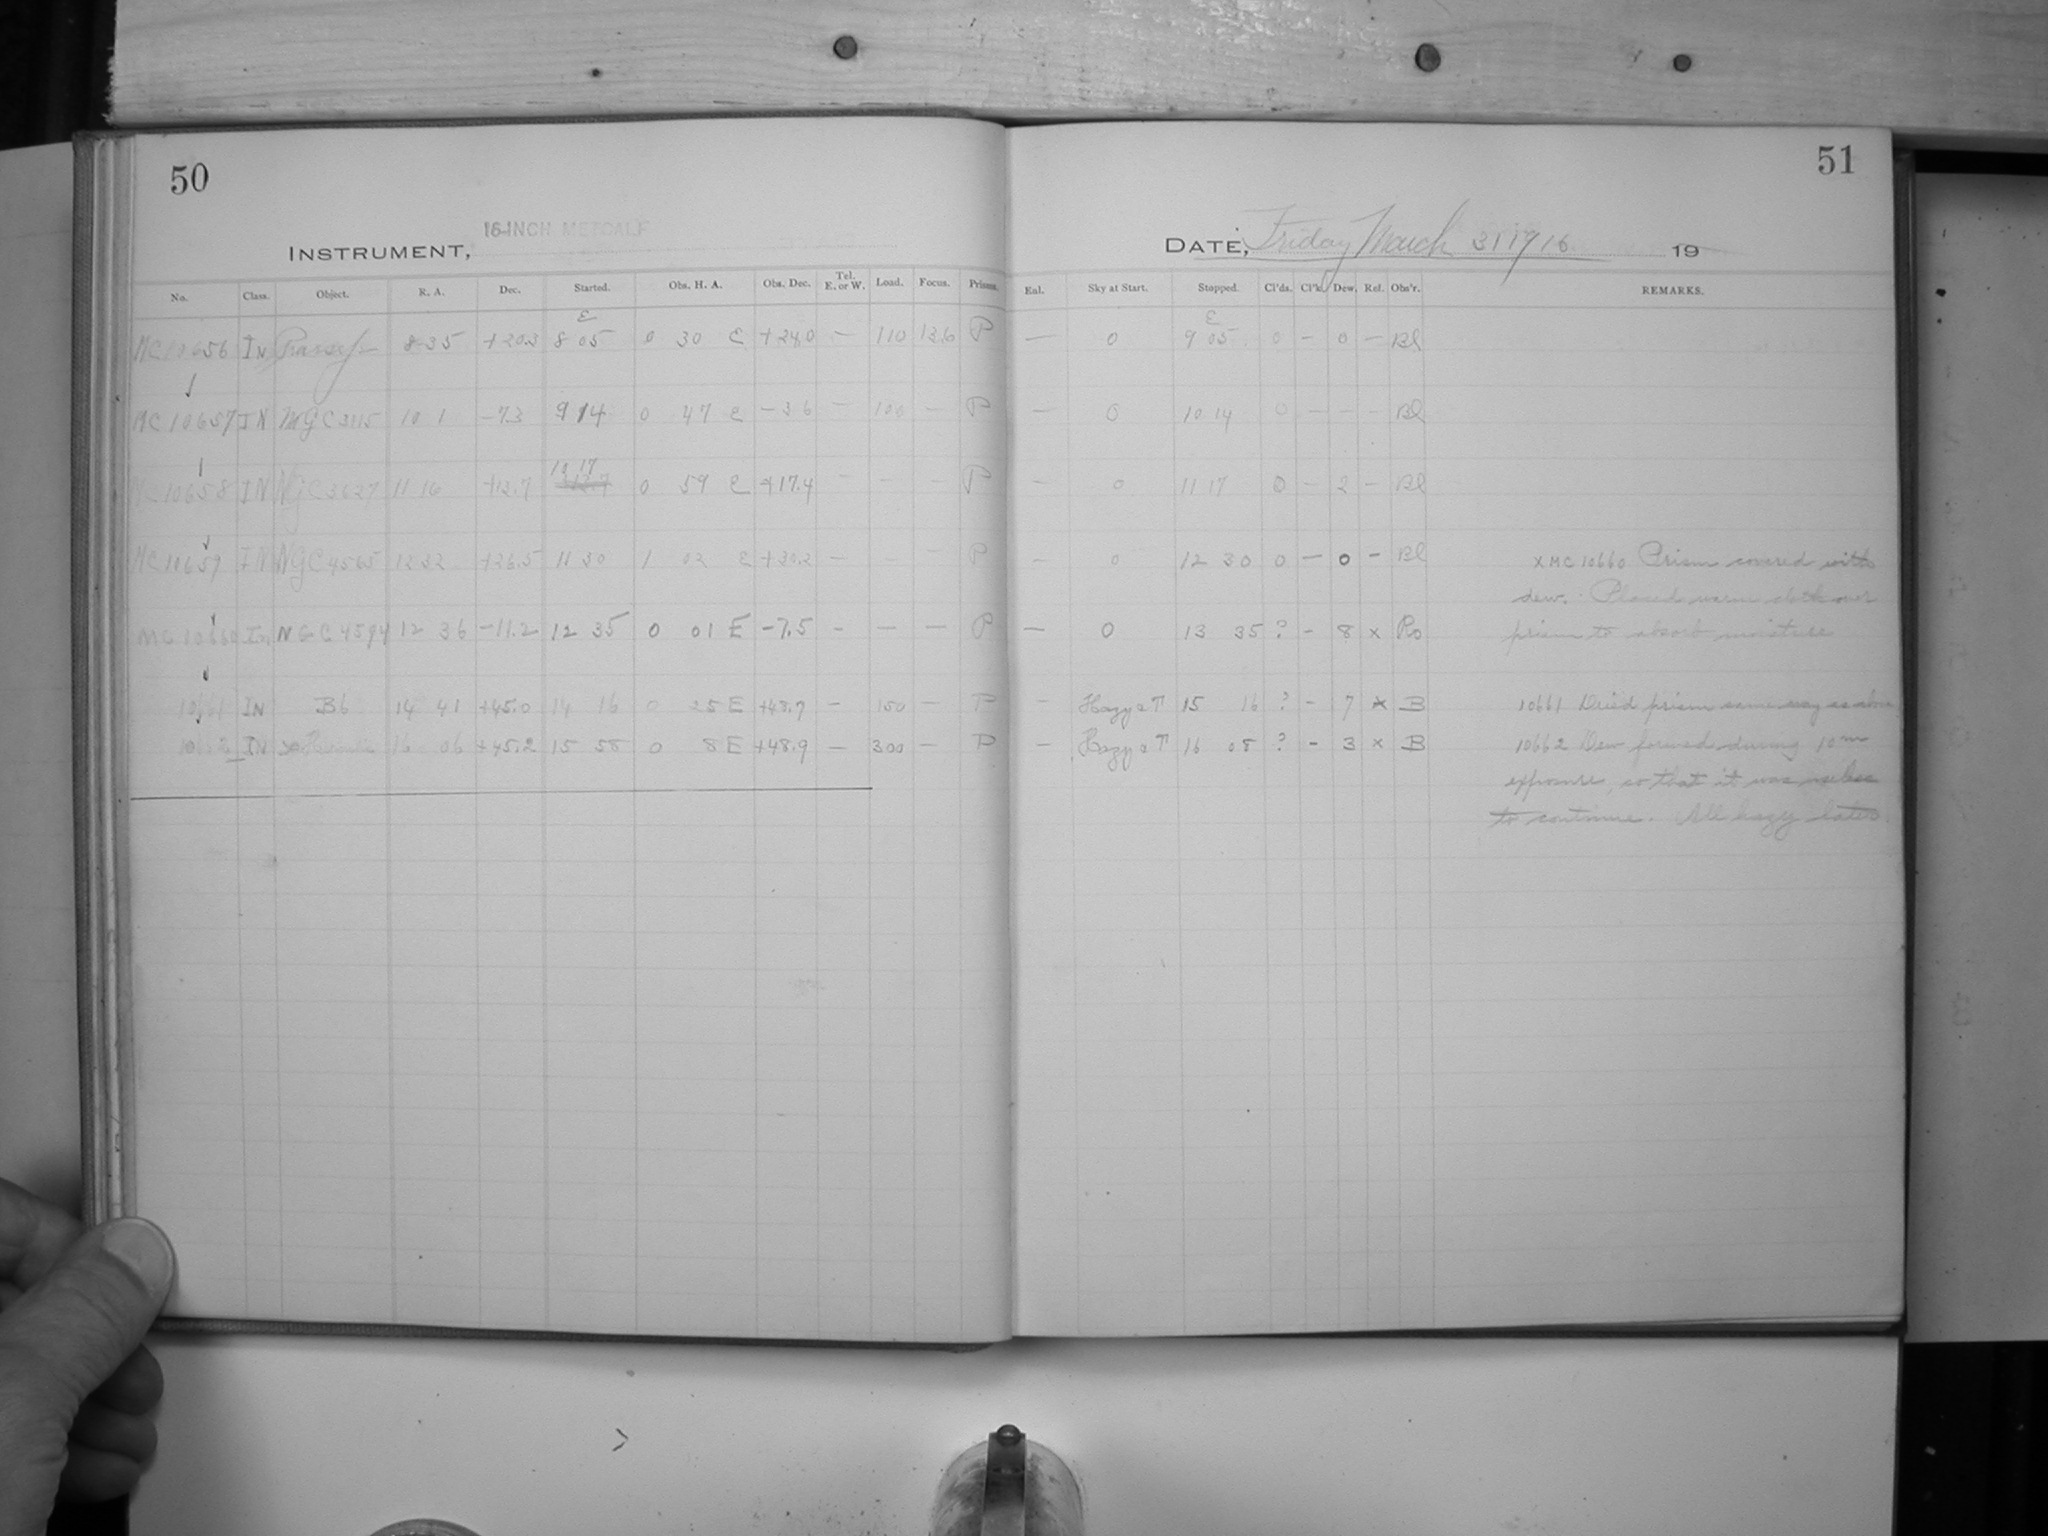 50
51
16-INCH METCALF
INSTRUMENT,
DATE, Friday March 31 1916 19
No. Class. Object. R. A. Dec. Started. Obs. H. A. Obs. Dec. Tel. E. or W. Load. Focus. Prisms. Enl. Sky at Start. Stopped. Cl'ds. Cl'k Dew. Rel. Obs'r. REMARKS.
E E
MC10656 IN 8 35 +20.3 8 05 0 30 E +24.0 — 110 13.6 P — 0 9 05 0 — 0 — Bl
MC10657 IN NGC3115 10 1 -7.3 9 14 0 47 E -3.6 — 100 — P — 0 10 14 0 — — — Bl
10 17
MC10658 IN NGC3627 11 16 +13.7 0 59 E +17.4 — — — P — 0 11 17 0 — 2 — Bl
MC10659 IN NGC4565 12 32 +26.5 11 30 1 02 E +30.2 — — — P — 0 12 30 0 — 0 — Bl XMC10660 Prism covered with
dew. Placed warm cloth over
MC10660 In NGC4594 12 36 -11.2 12 35 0 01 E -7.5 — — — P — 0 13 35 ? - 8 x Ro prism to absorb moisture
10661 IN B6 14 41 +45.0 14 16 0 25 E +48.7 — 150 — P — Hazy aT 15 16 ? - 7 x B 10661 Dried prism same way as above
10662 IN 16 06 +45.2 15 58 0 8 E +48.9 — 300 — P — Hazy aT 16 08 ? - 3 x B 10662 Dew formed during 10m
exposure, so that it was useless
to continue. All hazy later.